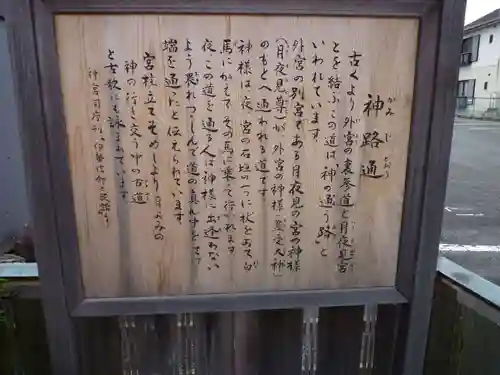 神路通
かみじ
どおり
古くより外宮の裏参道と月夜見宮
とを結ぶこの道は「神の通う路」と
いわれています。
外宮の別宮である月夜見の宮の神様
(月夜見尊)が外宮の神様(豊受大神)
のもとへ通われる道です。
神様は、夜、宮の石垣の一つに杖をあて白
馬にかえて、その馬に乗って行かれます
夜この道を通る人は神様に出逢わない
よう恐れつつしんで道の真ん中をさけて
端を通ったと伝えられています。
宮柱立てそめしより月よみの
神の行き交う中の古道
と古歌にも詠まれています。